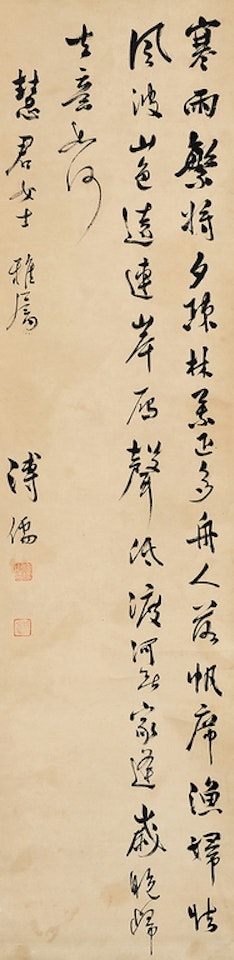 寒雨繁將夕疎林葉正多舟人落帆席漁婦怯
風波山色遠連岸雁聲低渡河無家逢歲晚歸
去意如何
慧君女士雅屬
溥儒